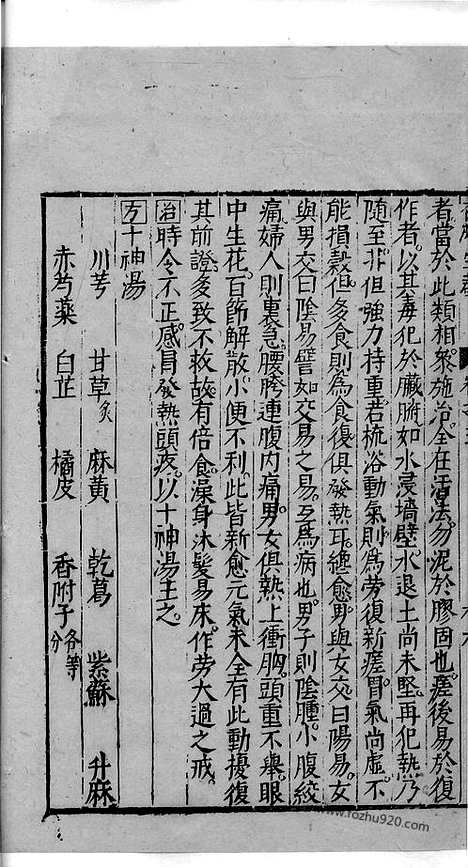 者當於此類相衆施治全在活法勿泥於膠固也瘥後易於復
作者以其毒犯於臟腑如水浸墻壁水退土尚未堅再犯熱乃
隨至非但強力持重若梳浴動氣則為勞復新瘥胃氣尚虛不
能損穀但多食則為食復俱發熱耳纔愈男與女交曰陽易女
與男交曰陰易譬如交易之易互為病也男子則陰腫小腹絞
痛婦人則裏急腰胯連腹內痛男女俱熱上衝胸頭重不舉眼
中生花百節解散小便不利此皆新愈元氣未全有此動擾復
其前證多致不救故有倍食澡身沐髮易床作勞大過之戒
治時令不正感冒發熱頭疼以十神湯主之
方十神湯
川芎 甘草炙 麻黃 乾葛 紫蘇 升麻
赤芍藥 白芷 橘皮 香附子各等分
www.fozhu920.com